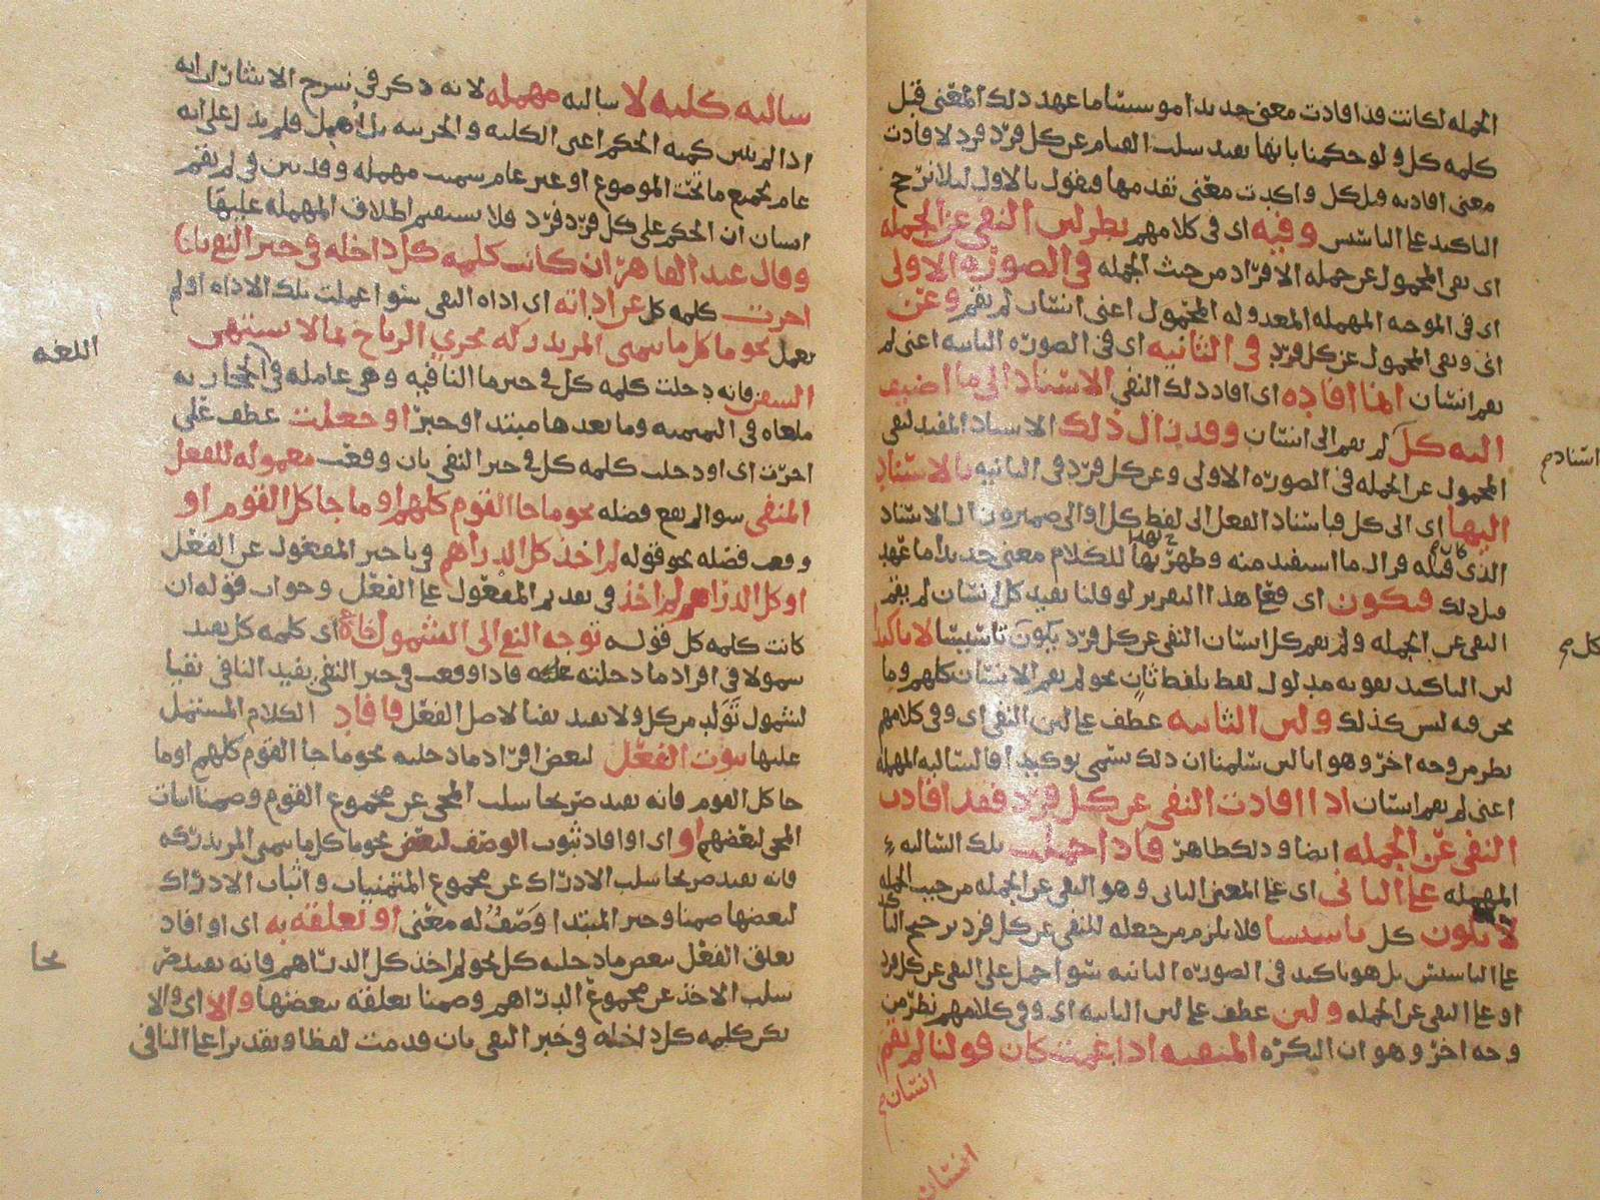 الجمله لكانت قد افادت معنى جديدا موسسا ما عهد ذلك المعنى قبل
كلمه كل ولو حكمنا بانها تفيد سلب القيام عن كل فرد فرد لافادت
معنى افادته قبل كل واكدت معنى تقدمها ونقول بالاول ليلا نرجح
التاكيد على التاسيس وفيه اى فى كلامهم نظر لان النفى عن الجمله
اى نفى المحمول عن جمله الافراد من حيث الجمله فى الصوره الاولى
اى فى الموجبه المهمله المعدوله المحمول اعنى انسان لم يقم وعن
اى ونفى المحمول عن كل فرد فى الثانيه اى فى الصوره الثانيه اعنى لم
يقم انسان انما افاده اى افاد ذلك النفى الاسناد الى ما اضيف
اليه كل لم يقم الى انسان وقد زال ذلك الاسناد المفيد لنفى
المحمول عن الجمله فى الصوره الاولى وعن كل فرد فى الثانيه بالاسناد
اليها اى الى كل فباسناد الفعل الى لفظ كل او الى ضميره زال الاسناد
الذى قبله فزال ما استفيد منه وظهر بها للكلام معنى جديد ما عهد
قبل ذلك فيكون اى فعلى هذا التقرير لو قلنا تفيد كل انسان لم يقم
النفى عن الجمله ولم يقم كل انسان النفى عن كل فرد يكون تاسيسا لا تاكيدا
لان التاكيد تقويه مدلول لفظ بلفظ ثان نحو لم يقم الانسان كلهم وما
نحن فيه ليس كذلك ولان الثانيه عطف على لان النفى اى وفى كلامهم
نظر من وجه اخر وهو انا لان سلمنا ان ذلك يسمى توكيدا فالسالبه المهمله
اعنى لم يقم انسان اذا افادت النفى عن كل فرد فقد افادت
النفى عن الجمله ايضا وذلك ظاهر فاذا حملت تلك السالبه
المهمله على الثانى اى على المعنى الثانى وهو النفى عن الجمله من حيث الجمله
لا يكون كل تاسيسا فلا يلزم من جعله للنفى عن كل فرد ترجيح التا
على التاسيس بل هو تاكيد فى الصوره الثانيه سوا حمل على النفى عن كل فرد
او على النفى عن الجمله ولان عطف على لان الثانيه اى وفى كلامهم نظر من
وجه اخر وهو ان النكره المنفيه اذا عمت كان قولنا لم يقم
انسان
انسان
اسناد
كل
سالبه كليه لا سالبه مهمله لانه ذكر فى شرح الاشارات انه
اذا لم يتبين كميه الحكم اعنى الكليه والجزييه بل اهمل فلم يدل على انه
عام لجميع ما تحت الموضوع او غير عام سميت مهمله وقد بين فى لم يقم
انسان ان الحكم على كل فرد فرد فلا يستقيم اطلاق المهمله عليها
وقال عبد القاهر ان كانت كلمه كل داخله فى حيز النفى بان
اخرت كلمه كل عن اداته اى اداه النفى سوا عملت تلك الاداه او لم
تعمل نحو ما كل ما يتمنى المرء يدركه تجرى الرياح بما لا تشتهى
السفن فانه دخلت كلمه كل فى حيز ما النافيه وهى عامله فى الحجازيه
ملغاه فى التميميه وما بعدها مبتدا وخبر او جعلت عطف على
اخرت اى او دخلت كلمه كل فى حيز النفى بان وقعت معموله للفعل
المنفى سوا لم يقع فضله نحو ما جا القوم كلهم او ما جا كل القوم او
وقعت فضله نحو قوله لم اخذ كل الدراهم فى تاخير المفعول عن الفعل
او كل الدراهم لم اخذ فى تقديم المفعول على الفعل وجواب قوله ان
كانت كلمه كل قوله توجه النفى الى الشمول خاصة اى كلمه كل تفيد
شمولا فى افراد ما دخلته عليه فاذا وقعت فى حيز النفى يفيد النافى نفيا
لشمول تولد من كل ولا يفيد نفيا لاصل الفعل فافاد الكلام المشتمل
عليها ثبوت الفعل لبعض افراد ما دخلته نحو ما جا القوم كلهم او ما
جا كل القوم فانه يفيد صريحا سلب المجى عن مجموع القوم وضمنا اثبات
المجى لبعضهم او اى او افاد ثبوت الوصف لبعض نحو ما كل ما يتمنى المرء يدركه
فانه يفيد صريحا سلب الادراك عن مجموع المتمنيات واثبات الادراك
لبعضها ضمنا وخبر المبتدا وصف له معنى او تعلقه به اى او افاد
تعلق الفعل ببعض ما دخلته كل نحو لم اخذ كل الدراهم فانه يفيد ضر
سلب الاخذ عن مجموع الدراهم وضمنا تعلقه ببعضها والا اى والا
تكن كلمه كل داخله فى حيز النفى بان قدمت لفظا وتقديرا على النافى
اللغه
يحا